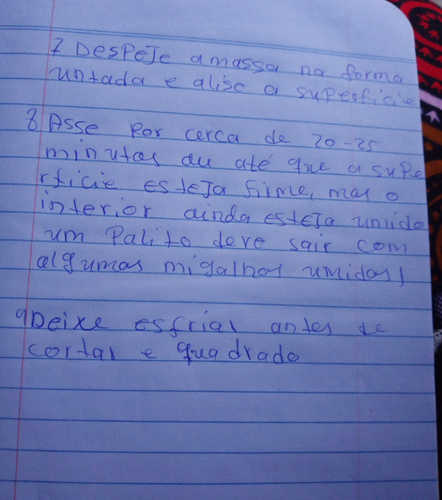 7 Despeje a massa na forma
untada e alise a superficie
8 Asse por cerca de 20-25
minutos ou até que a supe
rficie esteja firme, mas o
interior ainda esteja umido
um Palito deve sair com
algumas migalhas umidas)
9 Deixe esfriar antes de
cortar e quadrado